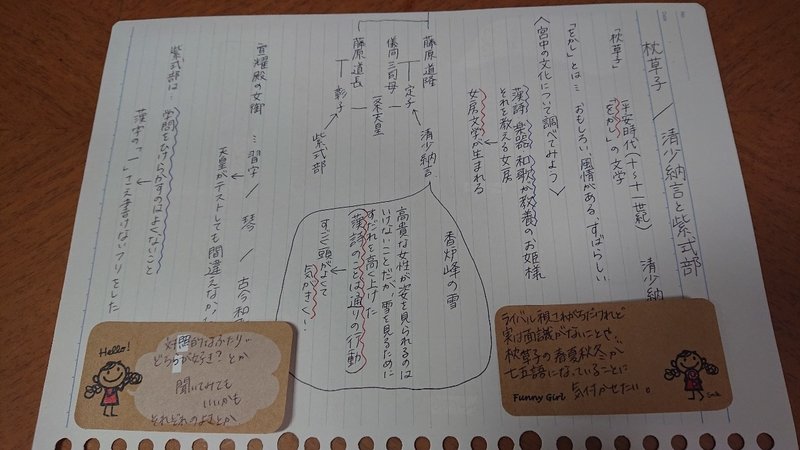 枕草子 / 清少納言と紫式部
「枕草子」 平安時代(十~十一世紀) 清少納
「をかし」の文学
「をかし」とは… おもしろい、風情がある、すばらしい
〈宮中の文化について調べてみよう〉
漢詩 楽器 和歌が教養のお姫様
それを教える女房
女房文学が生まれる
藤原道隆
定子
儀同三司母
一条天皇
藤原道長
彰子
清少納言
紫式部
香炉峰の雪
高貴な女性が姿を見られるのは
いけないことだが、雪を見るために
すだれを高く上げた
漢詩のことば通りの行動
すごく頭がよくて
気がきく…
宣耀殿の女御 … 習字 / 琴 / 古今和
天皇がテストしても間違えなか
紫式部は… 学問をひけらかすのはよくないこと
漢字の「一」さえ書けないふりをした
ライバル視されがちだけれど
実は面識がないことや、
枕草子の春夏秋冬が
七五語になっていることに
気付かせたい。
Funny Girl
Smile
Hello!
対照的なふたり…
どちらが好き?とか
聞いてみても
いいかも
それぞれのよさとか